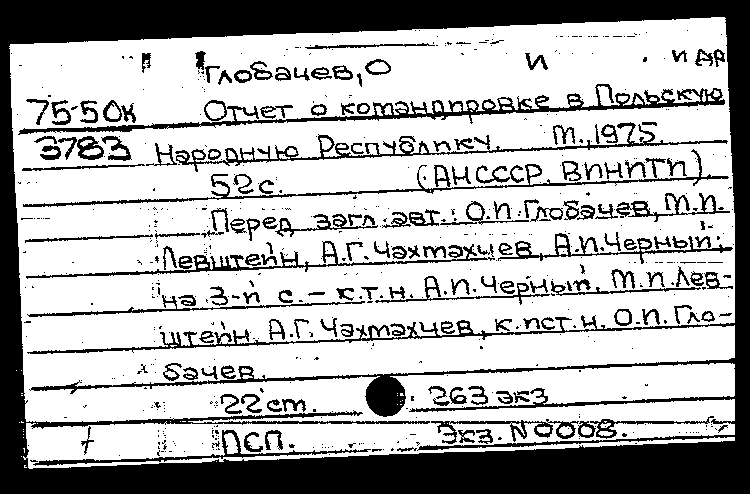 Глобачев, О И. и др
75-50к Отчет о командировке в Польскую
3783 Народную Республику. М., 1975.
52 с. (АН СССР. ВИНИТИ).
Перед загл. авт.: О.И. Глобачев, М.И.
Левштейн, А.Г. Чахмахчев, А.И. Черный;
на 3-й с. – к.т.н. А.И. Черный. М.И. Лев-
штейн. А.Г. Чахмахчев, к.ист.н. О.И. Гло-
бачев.
22 см. 263 экз
ДСП. Экз. N 0008.